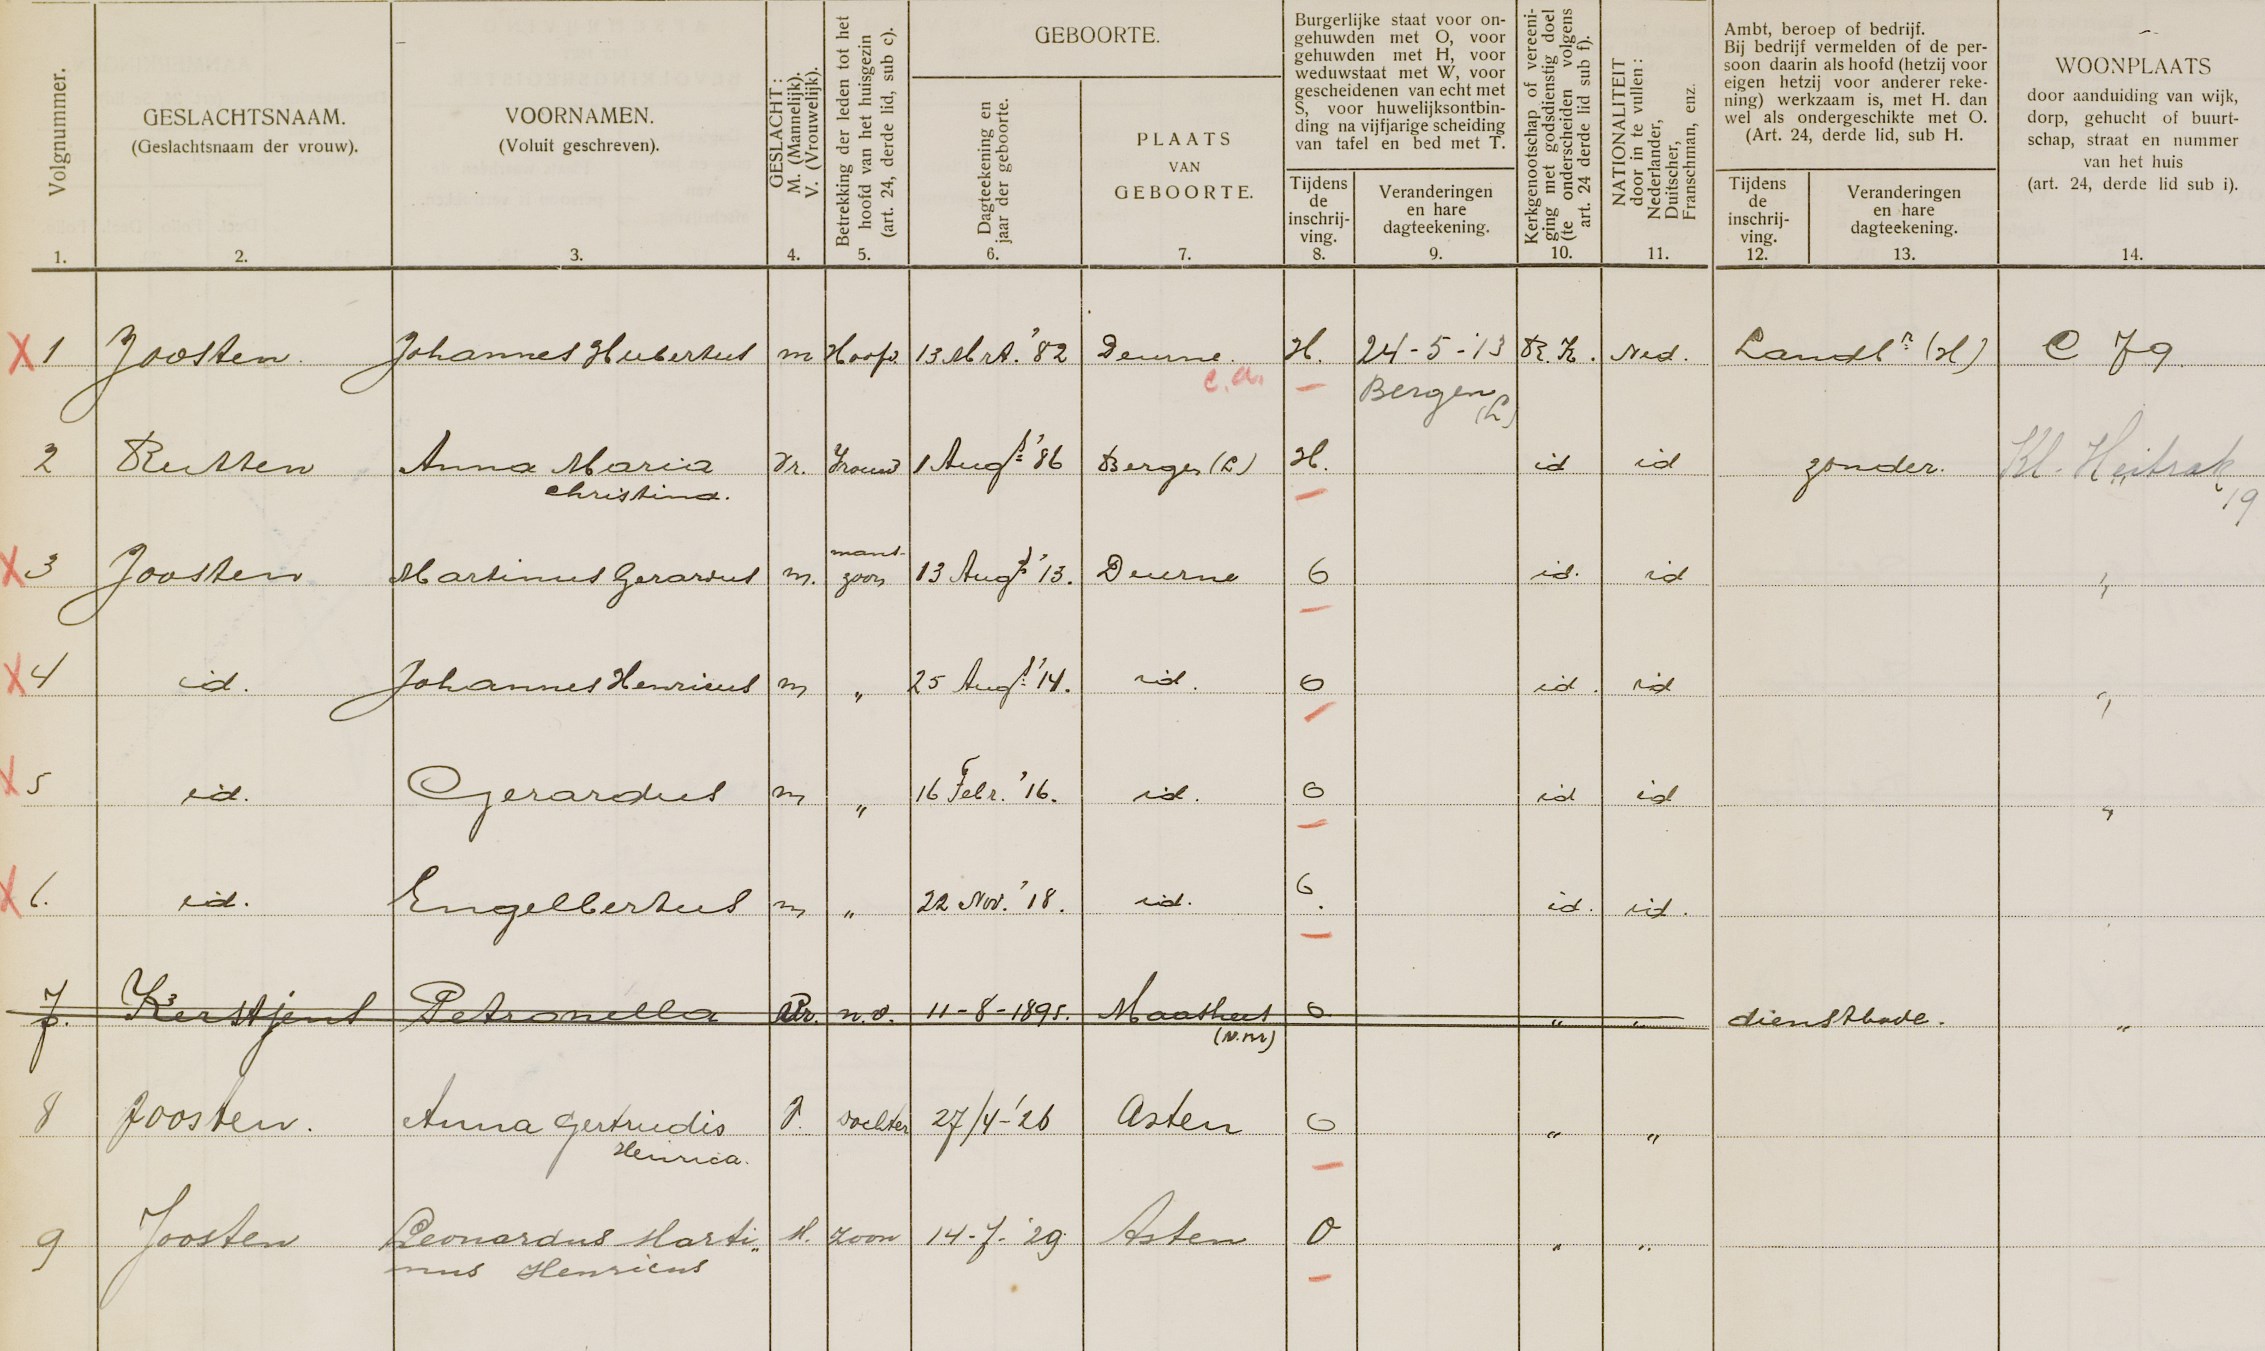 Volgnummer.
1.
GESLACHTSNAAM.
(Geslachtsnaam der vrouw).
2.
VOORNAMEN.
(Voluit geschreven).
3.
GESLACHT:
M. (Mannelijk).
V. (Vrouwelijk).
4.
Betrekking der leden tot het
hoofd van het huisgezin
(art. 24, derde lid, sub c).
5.
GEBOORTE.
Dagteekening en
jaar der geboorte.
6.
PLAATS
VAN
GEBOORTE.
7.
Burgerlijke staat voor on-
gehuwden met O, voor
gehuwden met H, voor
weduwstaat met W, voor
gescheidenen van echt met
S, voor huwelijksontbin-
ding na vijfjarige scheiding
van tafel en bed met T.
Tijdens
de
inschrij-
ving.
8.
Veranderingen
en hare
dagteekening.
9.
Kerkgenootschap of vereeni-
ging met godsdienstig doel
(te onderscheiden volgens
art. 24 derde lid sub f).
10.
NATIONALITEIT
door in te vullen:
Nederlander,
Duitscher,
Franschman, enz.
11.
Ambt, beroep of bedrijf.
Bij bedrijf vermelden of de per-
soon daarin als hoofd (hetzij voor
eigen hetzij voor anderer reke-
ning) werkzaam is, met H. dan
wel als ondergeschikte met O.
(Art. 24, derde lid, sub H.
Tijdens
de
inschrij-
ving.
12.
Veranderingen
en hare
dagteekening.
13.
WOONPLAATS
door aanduiding van wijk,
dorp, gehucht of buurt-
schap, straat en nummer
van het huis
(art. 24, derde lid sub i).
14.
X 1 Joosten. Johannes Hubertus m Hoofd. 13 Mrt. '82 Deurne. H. 24-5-'13 R.K. Ned. Landbr (H) C 79
c.a. Bergen (L)
2 Rutten Anna Maria Vr. Vrouw 1 Augt '86 Bergen (L) H. id id zonder. Kl. Heitrak
Christina. 19
X 3 Joosten Martinus Gerardus m. mans- zoon 13 Augt '13. Deurne O id. id "
X 4 id. Johannes Henricus m " 25 Augt '14. id. O id. id "
X 5 id. Gerardus m " 16 Febr. '16. id. O id id "
X 6. id. Engelbertus m " 22 Nov. '18. id. O. id. id.
7. Kerstjens Petronella Vr. n.v. 11-8-1895. Maashees O " " dienstbode. "
(N.Br)
8 Joosten. Anna Gertrudis V. dochter 27/4-'26 Asten O " "
Henrica.
9 Joosten Leonardus Marti„ M. zoon 14-7-'29 Asten O " "
nus Henricus